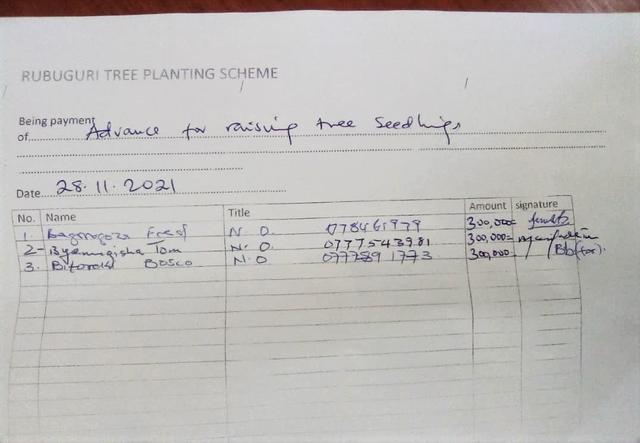 RUBUGURI TREE PLANTING SCHEME
Being payment
of Advance for raising tree Seedlings
Date 28.11.2021
No. Name Title Amount signature
1. N.O. 0778461979 300,000=
2- Byamugisha Tom N.O. 0777543981 300,000=
3. BOSCO N.O 0777891773 300,000